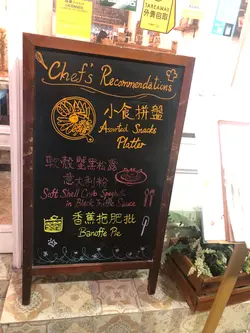 TAKEAWAY
外賣自取
Chef's Recommendations
小食拼盤
Assorted Snacks
Platter
軟殼蟹黑松露
意大利粉
Soft Shell Crab Spaghetti
in Black Truffle Sauce
香蕉拖肥批
Banoffe Pie